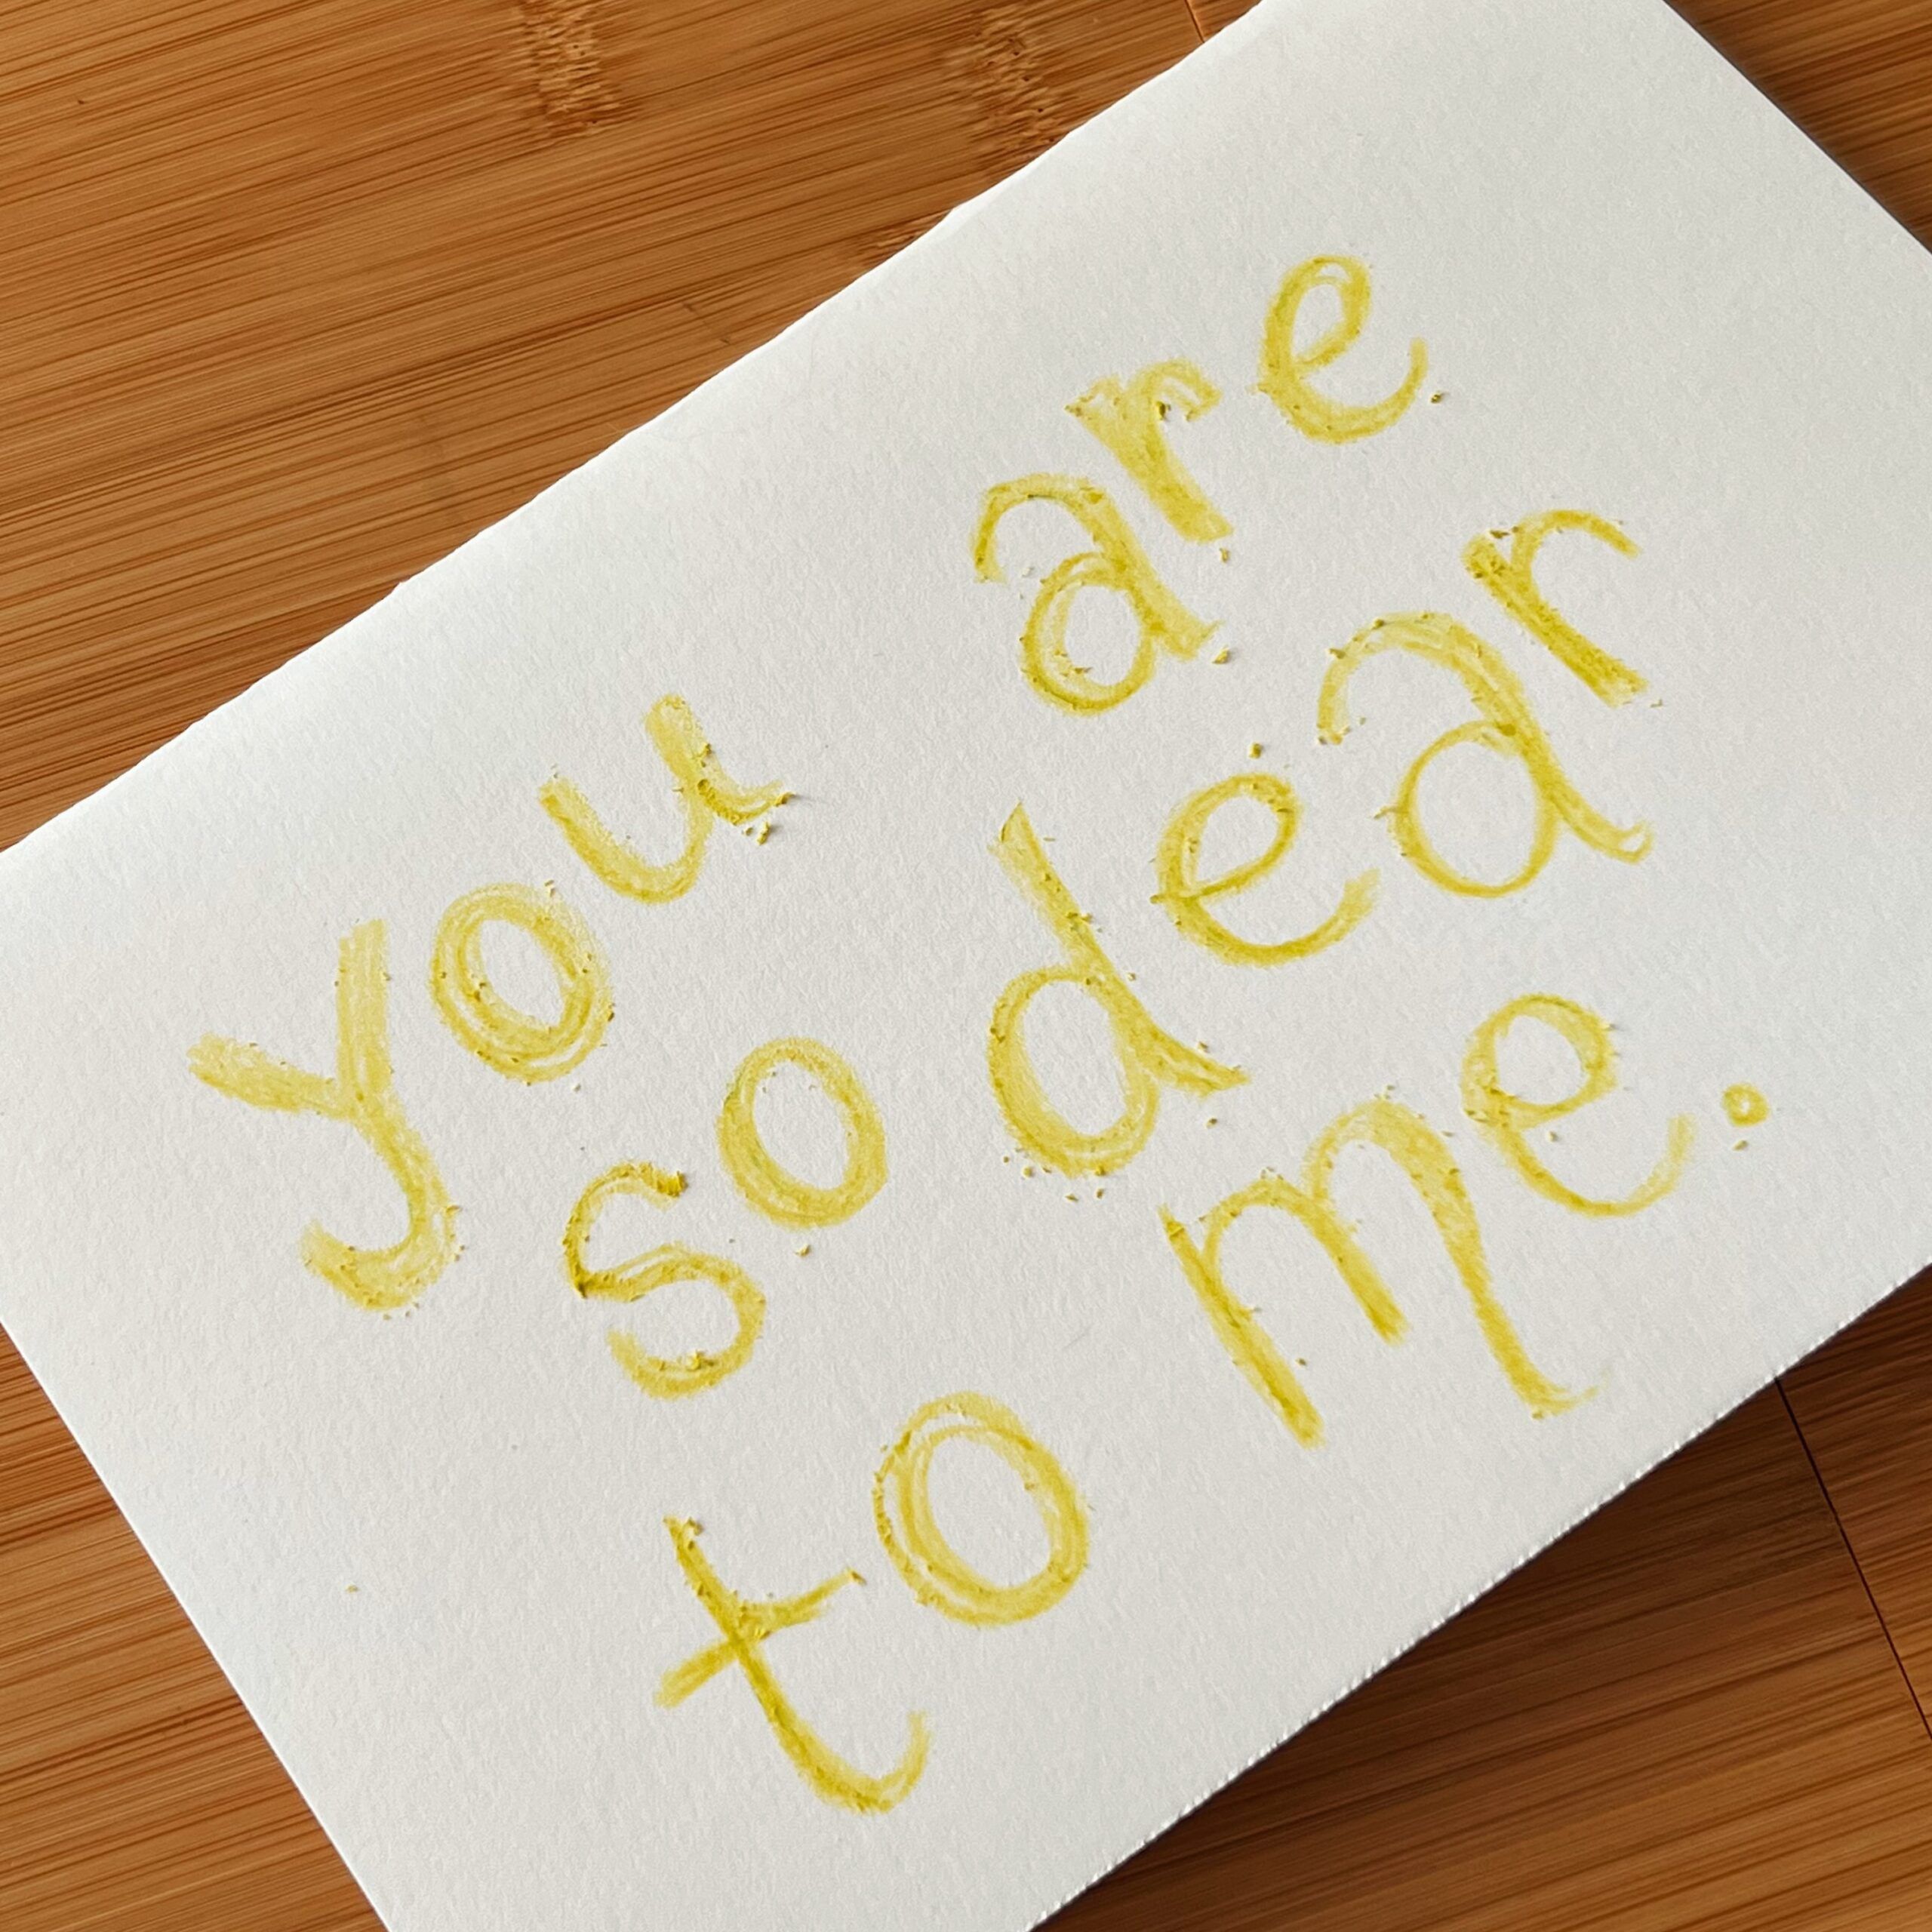 you are
so dear
to me.